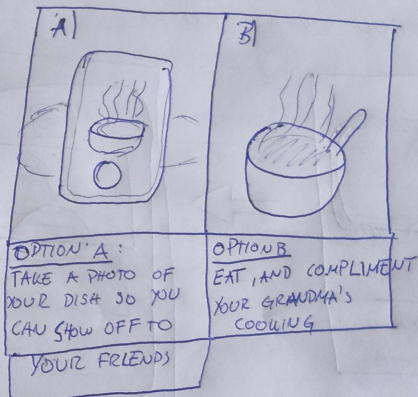 A)
B)
OPTION A:
TAKE A PHOTO OF
YOUR DISH SO YOU
CAN SHOW OFF TO
YOUR FRIENDS
OPTION B
EAT, AND COMPLIMENT
YOUR GRANDMA'S
COOKING